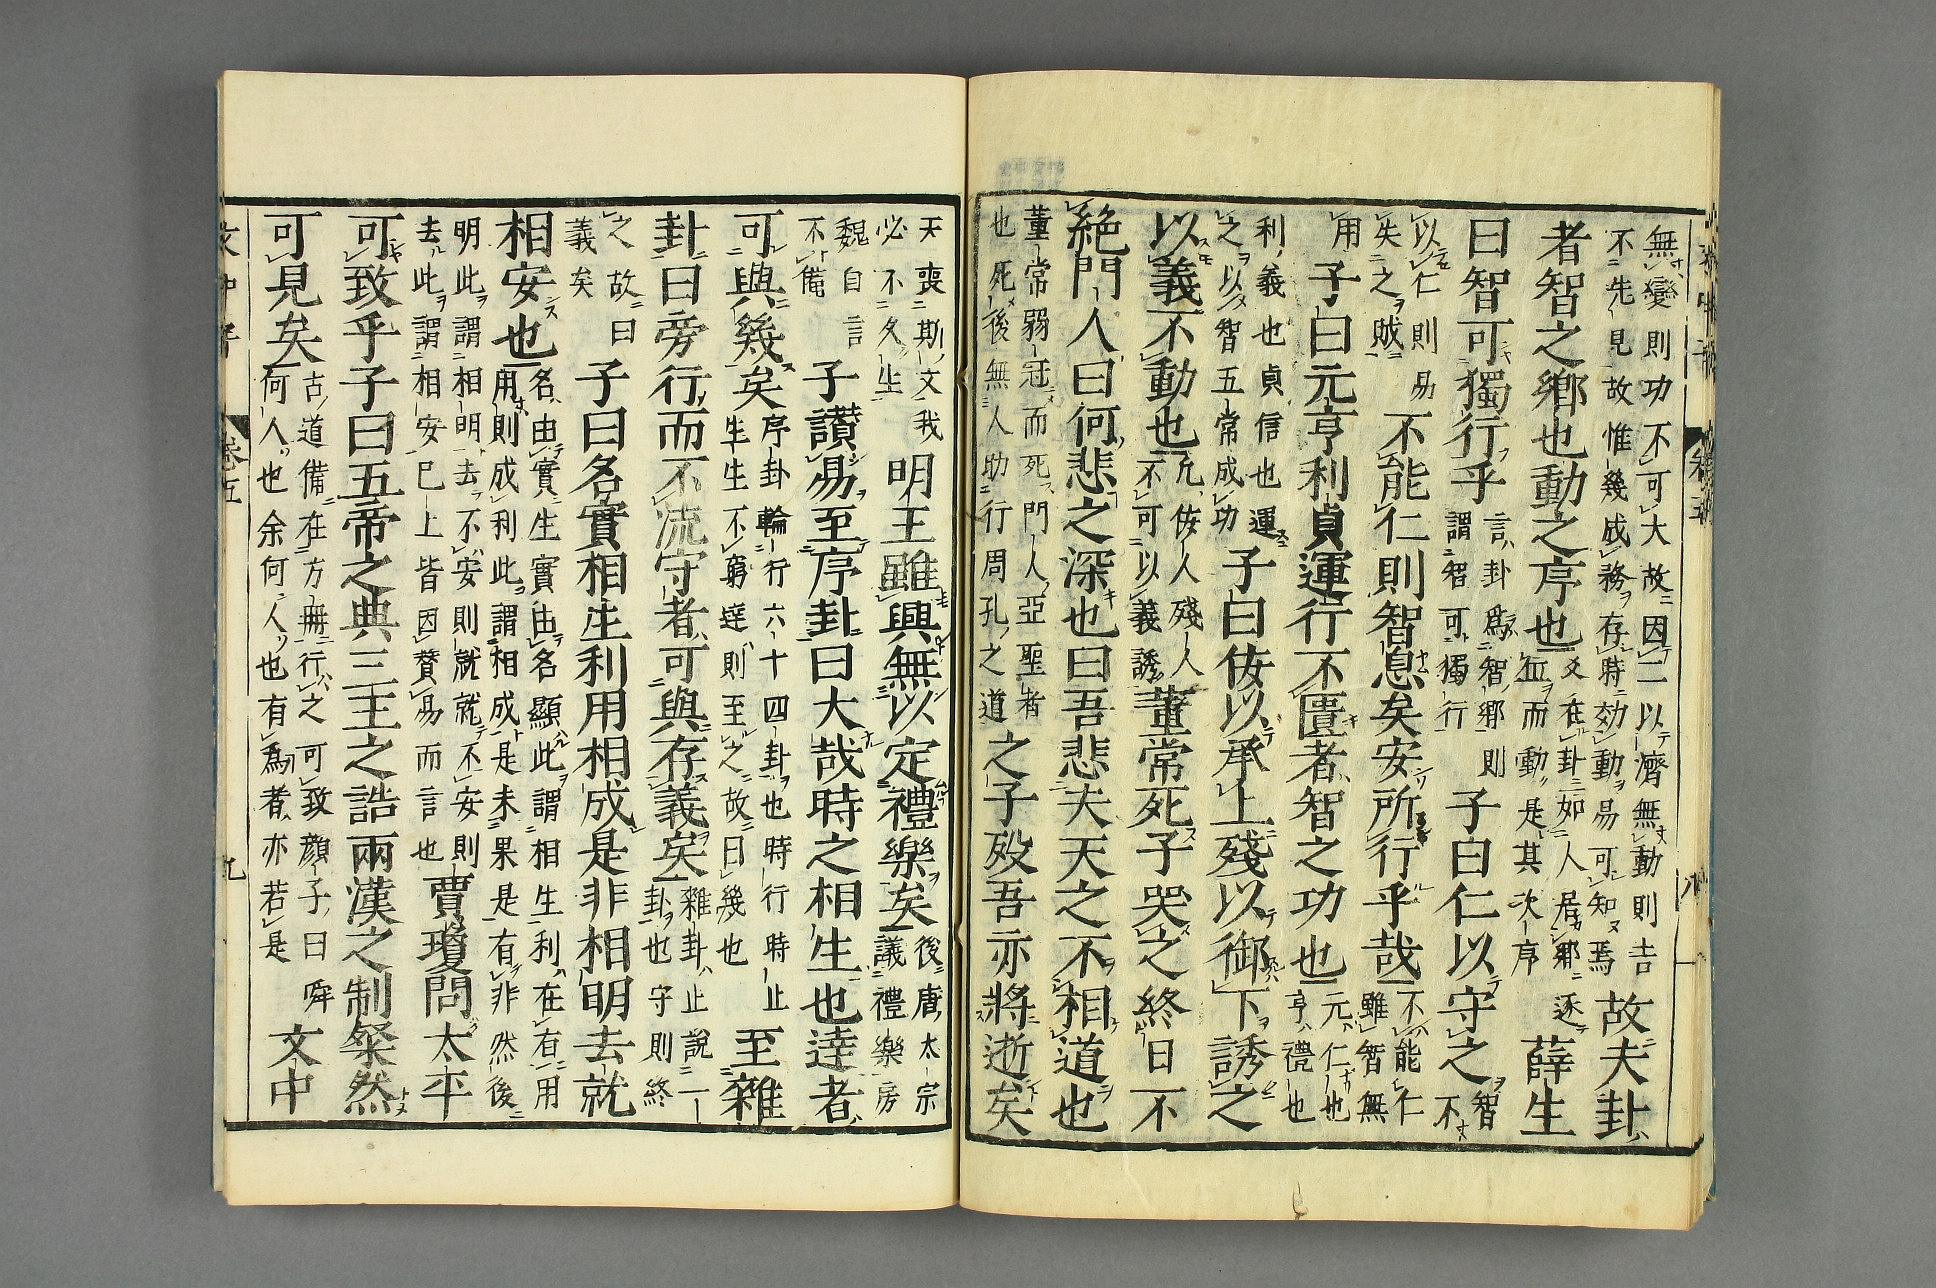 無變則功不可大故因二以濟無動則吉
不先見故惟幾成務存時効動易可知焉
故夫卦
者智之鄉也動之序也
爻在卦如人居鄉逐
而動是其次序
薛生
曰智可獨行乎
言卦爲智鄉則
謂智可獨行
子曰仁以守之
智
不
以仁則易
失之賊
不能仁則智息矣安所行乎哉
不能仁
雖智無
用
子曰元亨利貞運行不匱者智之功也
元仁也
亨禮也
利義也貞信也運
之以智五常成功
子曰佞以承上殘以御下誘之
以義不動也
凢佞人殘人
不可以義誘
董常死子哭之終日不
絶門人曰何悲之深也曰吾悲夫天之不相道也
董常弱冠而死門人亞聖者
也死後無人助行周孔之道
之子殁吾亦將逝矣
天喪斯文我
必不久生
明王雖興無以定禮樂矣
後唐太宗
議禮樂房
魏自言
不備
子讃易至序卦曰大哉時之相生也達者
可與幾矣
序卦輪行六十四卦也時行時止
生生不窮達則至之故曰幾也
至雜
卦曰旁行而不流守者可與存義矣
雜卦止說一
卦也守則終
之故曰
義矣
子曰名實相生利用相成是非相明去就
相安也
名由實生實由名顯此謂相生利在有用
用則成利此謂相成是未果是有非然後
明此謂相明去不安則就就不安則
去此謂相安已上皆因賛易而言也
賈瓊問太平
可致乎子曰五帝之典三王之誥兩漢之制粲然
可見矣
古道備在方冊行之可致顔子曰舜
何人也余何人也有爲者亦若是
文中
文中子 卷五 九